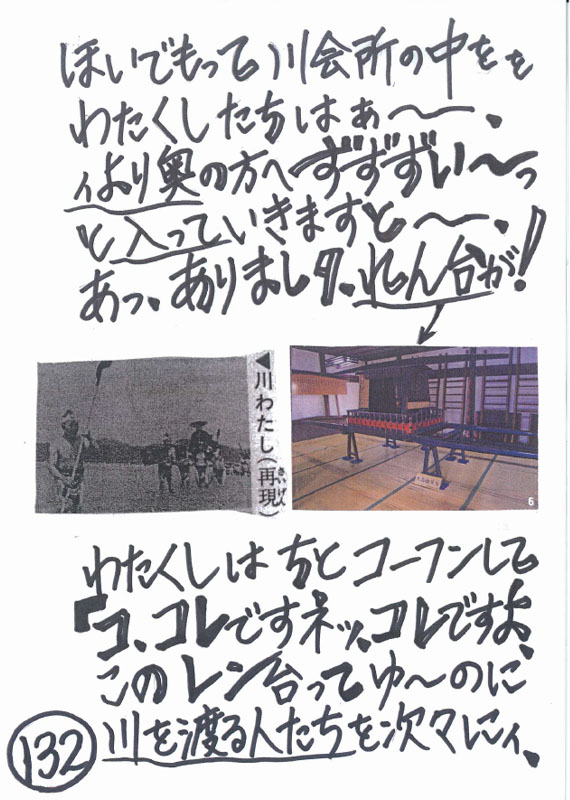 ほいでもって川会所の中をを
わたくしたちはぁ〜、
ィより奥の方へずずずい〜っ
と入っていきますと〜、
あっ、ありましタ、れん台が!
◀川わたし(再現)
さいげん
6
わたくしはちとコーフンして
「コ、コレですネッ、コレですよ、
このレン台ってゆ〜のに
川を渡る人たちを次々にィ、
132